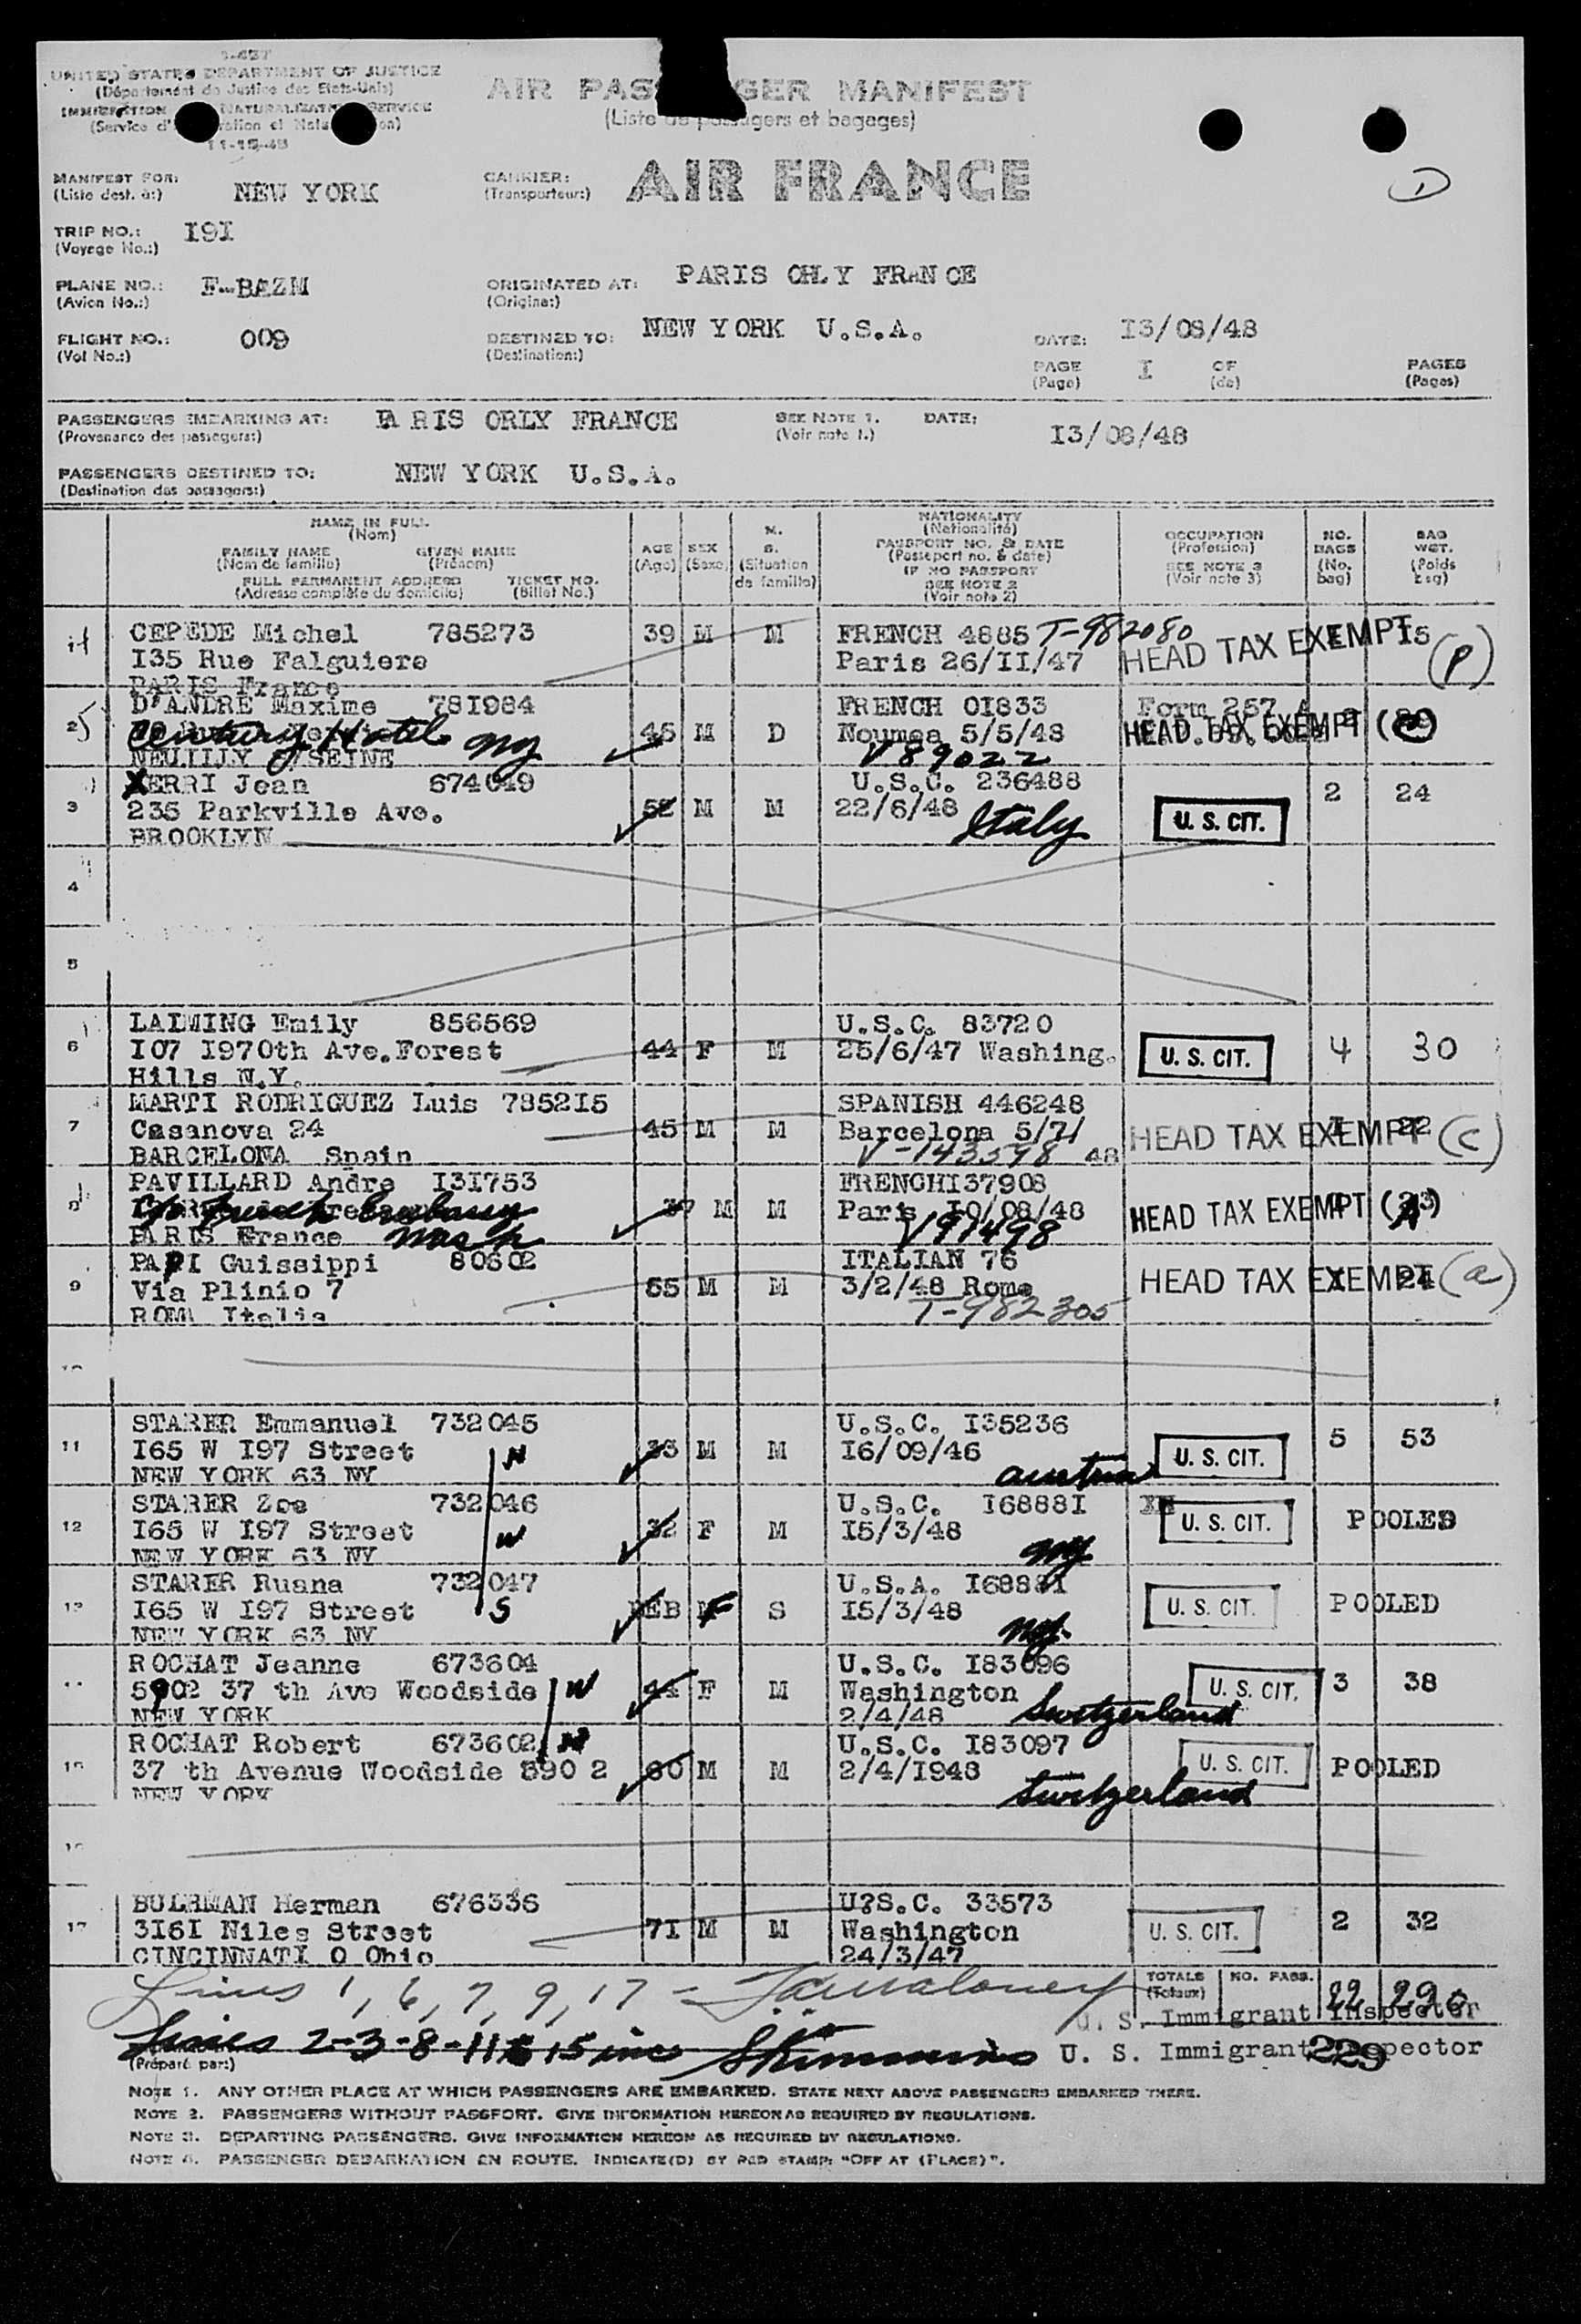 I-437
UNITED STATES DEPARTMENT OF JUSTICE
(Département de Justice des Etats-Unis)
IMMIGRATION NATURALIZATION SERVICE
(Service d'
11-15-45
AIR PAS GER MANIFEST
(Liste de passagers et bagages)
MANIFEST FOR: NEW YORK
(Liste dest. à:)
CARRIER: AIR FRANCE
(Transporteur:)
TRIP NO.: I9I
(Voyage No.:)
PLANE NO.: F-BAZM
(Avion No.:)
ORIGINATED AT: PARIS ORLY FRANCE
(Origine:)
FLIGHT NO.: 009
(Vol No.:)
DESTINED TO: NEW YORK U.S.A.
(Destination:)
DATE: I3/08/48
PAGE I OF PAGES
(Page) (de) (Pages)
PASSENGERS EMBARKING AT: PARIS ORLY FRANCE
(Provenance des passagers:)
SEE NOTE 1. DATE: I3/08/48
(Voir note 1.)
PASSENGERS DESTINED TO: NEW YORK U.S.A.
(Destination des passagers:)
NAME IN FULL
(Nom)
FAMILY NAME GIVEN NAME
(Nom de famille) (Prénom)
FULL PERMANENT ADDRESS TICKET NO.
(Adresse complète du domicile) (Billet No.)
AGE
(Age)
SEX
(Sexe)
M.
S.
(Situation
de famille)
NATIONALITY
(Nationalité)
PASSPORT NO. & DATE
(Passeport no. & date)
IF NO PASSPORT
SEE NOTE 2
(Voir note 2)
OCCUPATION
(Profession)
SEE NOTE 3
(Voir note 3)
NO.
BAGS
(No.
bag)
BAG
WGT.
(Poids
bag)
CEPEDE Michel 785273 39 M M FRENCH 4885 T-982080 I5
I35 Rue Falguiere Paris 26/II/47 HEAD TAX EXEMPT (P)
PARIS France
2 D'ANDRE Maxime 78I984 45 M D FRENCH 0I833 Form 257
Century Hotel NY Noumea 5/5/48 HEAD TAX EXEMPT
NEUILLY S/SEINE V89022
3 XERRI Jean 674049 52 M M U.S.C. 236488 2 24
235 Parkville Ave. 22/6/48 Italy U. S. CIT.
BROOKLYN
4
5
6 LAIMING Emily 856569 44 F M U.S.C. 83720 4 30
I07 I970th Ave.Forest 25/6/47 Washing. U. S. CIT.
Hills N.Y.
7 MARTI RODRIGUEZ Luis 7852I5 45 M M SPANISH 446248 I 22
Casanova 24 Barcelona 5/7/ HEAD TAX EXEMPT (C)
BARCELONA Spain V-143598 48
8 PAVILLARD Andre I3I753 37 M M FRENCHI37908
c/o French Embassy Paris I0/08/48 HEAD TAX EXEMPT (A)
PARIS France Wash V91498
9 PAPI Guissippi 80602 55 M M ITALIAN 76
Via Plinio 7 3/2/48 Rome HEAD TAX EXEMPT 24 (a)
ROMA Italia T-982305
11 STARER Emmanuel 732045 33 M M U.S.C. I35236 5 53
I65 W I97 Street W I6/09/46 U. S. CIT.
NEW YORK 63 NY austria
12 STARER Zoe 732046 32 F M U.S.C. I6888I POOLED
I65 W I97 Street W I5/3/48 U. S. CIT.
NEW YORK 63 NY NY
13 STARER Ruana 732047 BEB F S U.S.A. I6888I POOLED
I65 W I97 Street S I5/3/48 U. S. CIT.
NEW YORK 63 NY NY
ROCHAT Jeanne 673604 44 F M U.S.C. I83096 3 38
5902 37 th Ave Woodside W Washington U. S. CIT.
NEW YORK 2/4/48 Switzerland
15 ROCHAT Robert 673602 60 M M U.S.C. I83097 POOLED
37 th Avenue Woodside 5902 2/4/I948 U. S. CIT.
NEW YORK Switzerland
17 BUERMAN Herman 676336 71 M M U?S.C. 33573 2 32
3I6I Niles Street Washington U. S. CIT.
CINCINNATI O Ohio 24/3/47
TOTALS NO. PASS. 22 290
(Totaux)
Lines 1, 6, 7, 9, 17 -
U. S. Immigrant Inspector
Lines 2-3-8-11 to 15 inc
U. S. Immigrant Inspector 229
(Préparé par:)
NOTE 1. ANY OTHER PLACE AT WHICH PASSENGERS ARE EMBARKED. STATE NEXT ABOVE PASSENGERS EMBARKED THERE.
NOTE 2. PASSENGERS WITHOUT PASSPORT. GIVE INFORMATION HEREON AS REQUIRED BY REGULATIONS.
NOTE 3. DEPARTING PASSENGERS. GIVE INFORMATION HEREON AS REQUIRED BY REGULATIONS.
NOTE 4. PASSENGER DEBARKATION EN ROUTE. INDICATE(D) BY RED STAMP: "OFF AT (PLACE)".